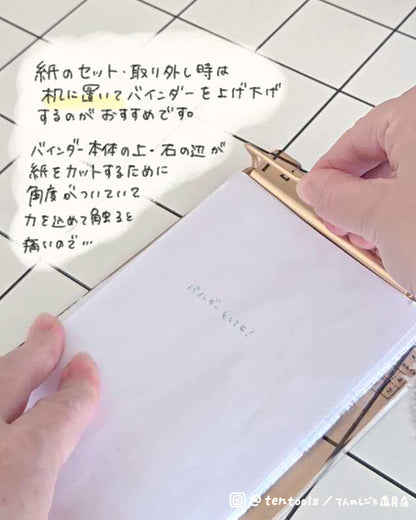 紙のセット・取り外し時は
机に置いてバインダーを上げ下げ
するのがおすすめです。
バインダー本体の上・右の辺が
紙をカットするために
角度がついていて
力を込めて触ると
痛いので…
バインダーをしてね!
@tentools/てんのしごと道具店